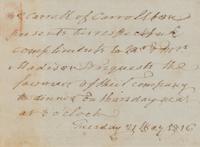 Carroll of Carrollton
presents his respectful
compliments to Mr & Mrs
Madison & requests the
favour of their company
to dinner on thursday next
at 5 o'clock
Tuesday 21 May 1816